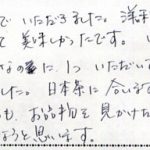 で いただきました。洋平
て 美味しかったです。
なのに、1つ いただい
した。日本茶に合い
も、お品物を見かけた
ようと思います。